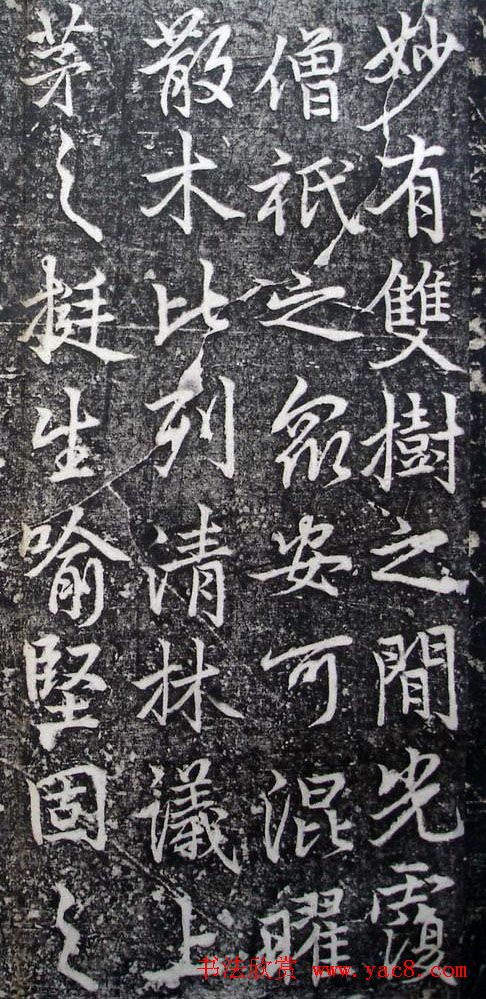 妙有雙樹之間光覆
僧祇之眾安可混曜
散木比列清林議上
茅之挺生喻堅固之
书法欣赏 www.yac8.com